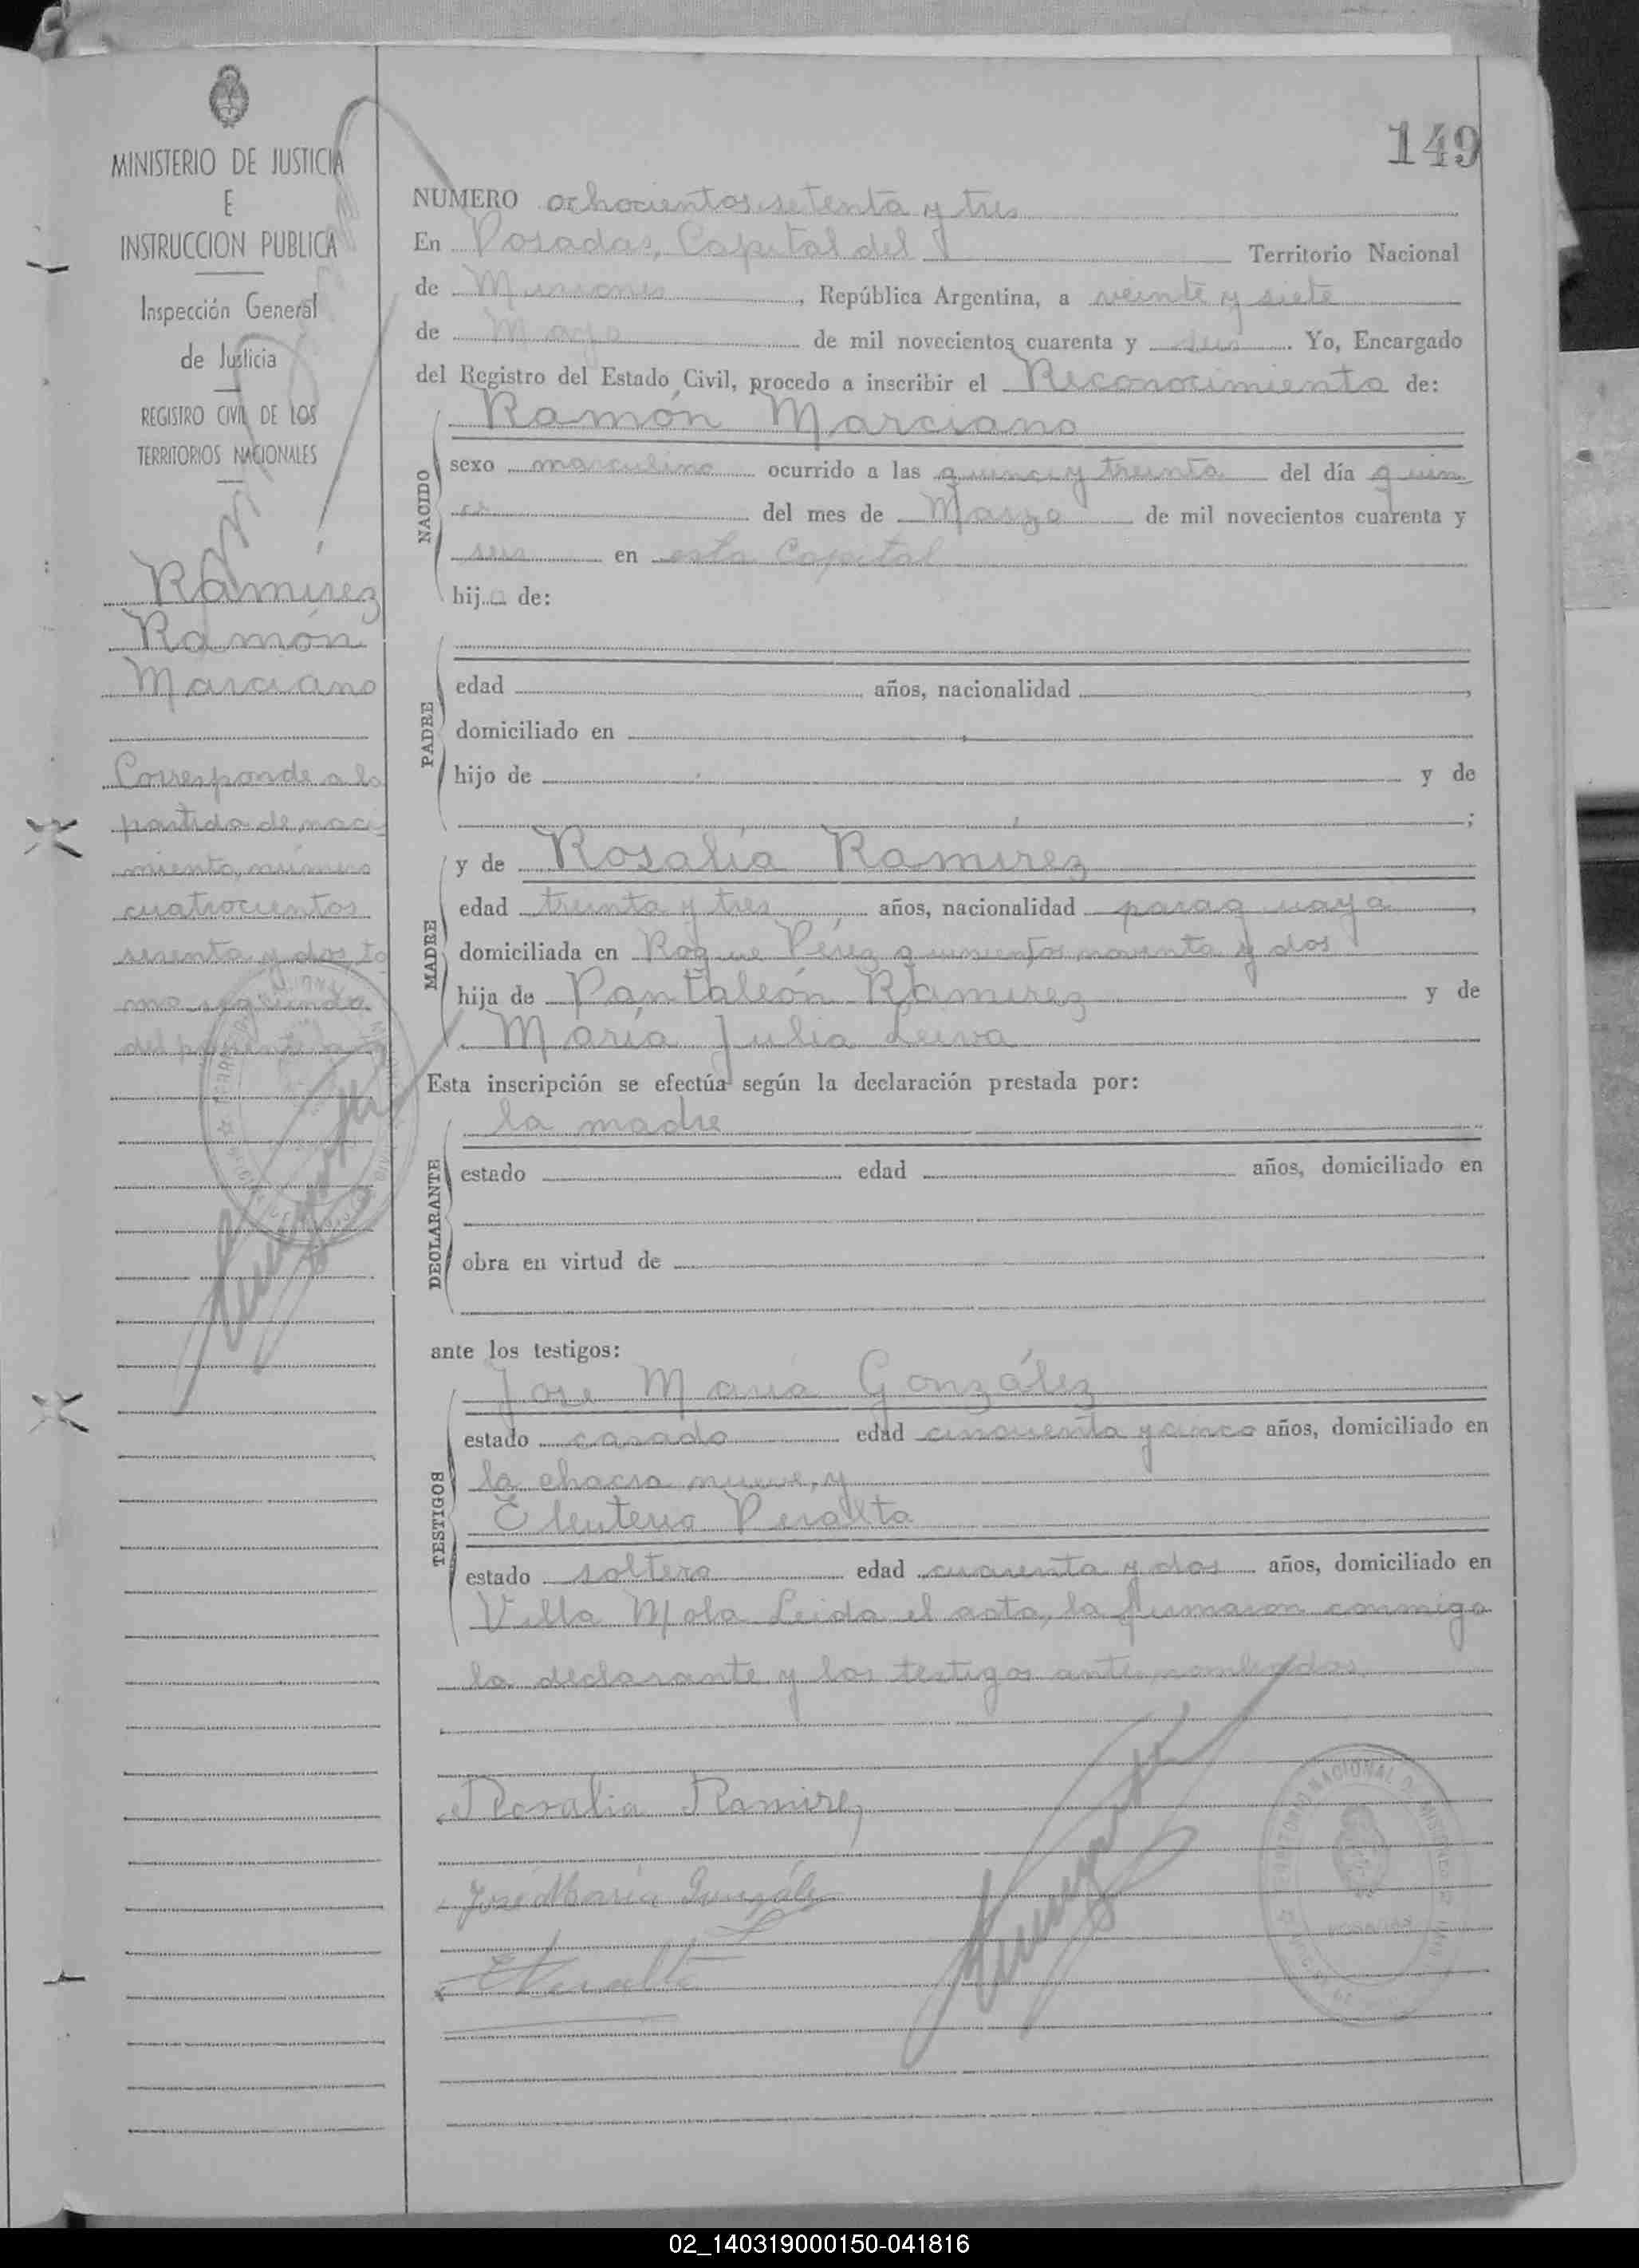 149
MINISTERIO DE JUSTICIA
E
INSTRUCCION PUBLICA
Inspección General
de Justicia
REGISTRO CIVIL DE LOS
TERRITORIOS NACIONALES
Ramírez
Ramón
Marciano
Corresponde a la
partida de naci-
miento, número
cuatrocientos
sesenta y dos, to
mo segundo
del presente año
NUMERO ochocientos setenta y tres
En Posadas, Capital del Territorio Nacional
de Misiones, República Argentina, a veinte y siete
de Mayo de mil novecientos cuarenta y seis. Yo, Encargado
del Registro del Estado Civil, procedo a inscribir el Reconocimiento de:
Ramón Marciano
NACIDO
sexo masculino ocurrido a las quince y treinta del día quin
ce del mes de Marzo de mil novecientos cuarenta y
seis en esta Capital
hijo de:
PADRE
edad años, nacionalidad ,
domiciliado en
hijo de y de
;
MADRE
y de Rosalía Ramírez
edad treinta y tres años, nacionalidad paraguaya,
domiciliada en Roque Pérez quinientos noventa y dos
hija de Pantaleón Ramírez y de
María Julia Leiva
Esta inscripción se efectúa según la declaración prestada por:
DECLARANTE
la madre
estado edad años, domiciliado en
obra en virtud de
ante los testigos:
TESTIGOS
José María González
estado casado edad cincuenta y cinco años, domiciliado en
la chacra nueve, y
Eleuterio Peralta
estado soltero edad cuarenta y dos años, domiciliado en
Villa Mola Leida el acta, la firmaron conmigo
la declarante y los testigos antes nombrados
Rosalia Ramirez
José María González
EPeralta
TERRITORIO NACIONAL DE MISIONES
POSADAS
02_140319000150-041816